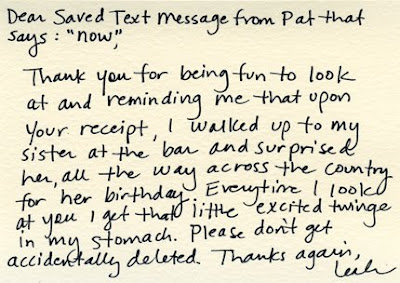 Dear Saved Text message from Pat that
says: "now,"
Thank you for being fun to look
at and reminding me that upon
your receipt, I walked up to my
sister at the bar and surprised
her, all the way across the country
for her birthday. Everytime I look
at you I get that little excited twinge
in my stomach. Please don't get
accidentally deleted. Thanks again,
Leah